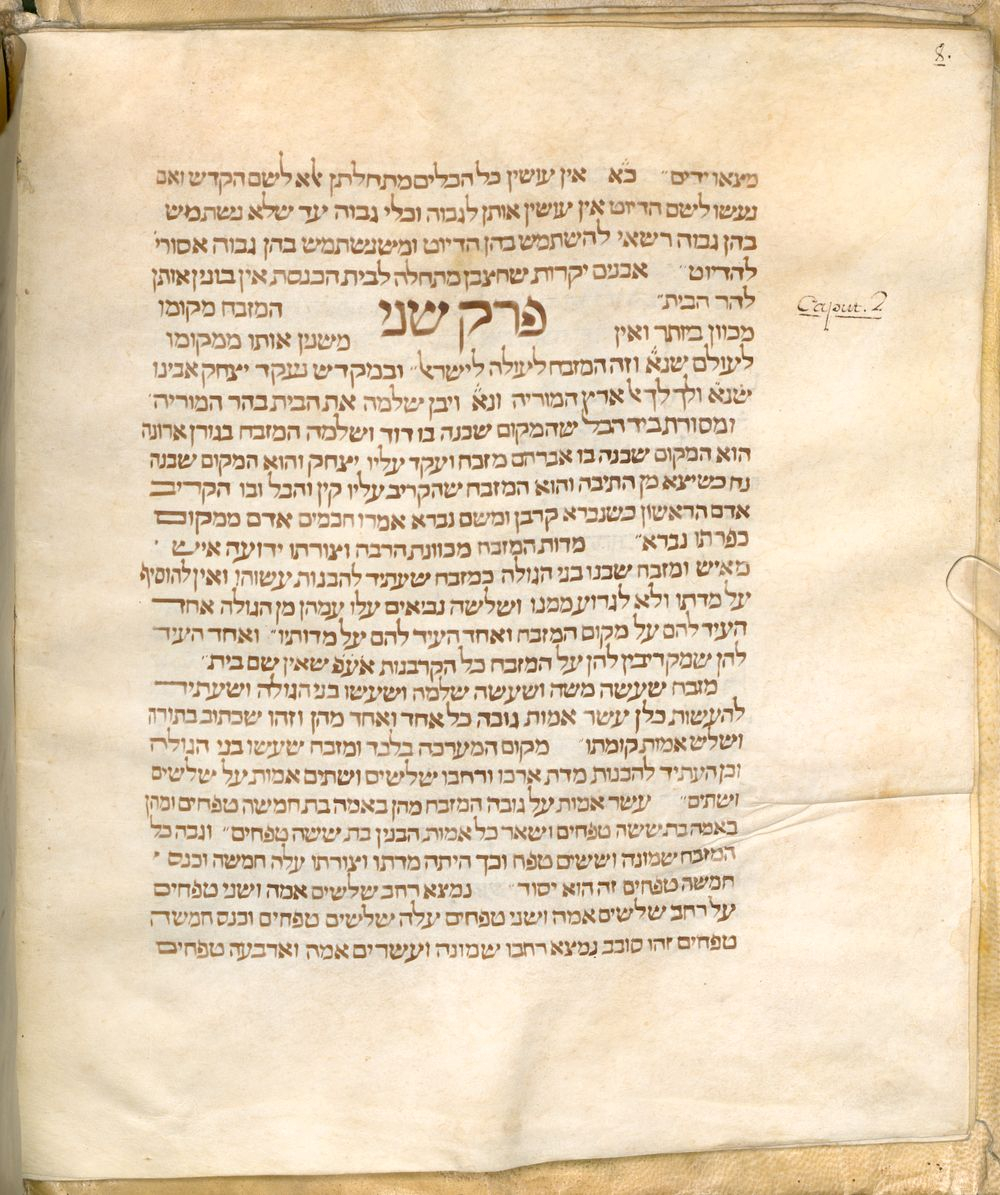 8.
מצאו ידים״ כ״א אין עושין כל הכלים מתחלתן אלא לשם הקדש ואם
נעשו לשם הדיוט אין עושין אותן לגבוה וכלי גבוה עד שלא נשתמש
בהן גבוה רשאי להשתמש בהן הדיוט ומשנשתמש בהן גבוה אסורי׳
להדיוט״ אבנים יקרות שחצבן מתחלה לבית הכנסת אין בונין אותן
להר הבית״
פרק שני
המזבח מקומו
Caput. 2
מכוון ביותר ואין
משנין אותו ממקומו
לעולם שנ״א וזה המזבח לעולה לישראל״ ובמקדש נעקד יצחק אבינו
שנ״א ולך לך אל ארץ המוריה ונ״א ויבן שלמה את הבית בהר המוריה׳
ומסורת ביד הכל שהמקום שבנה בו דוד ושלמה המזבח בגורן ארונה
הוא המקום שבנה בו אברהם מזבח ועקד עליו יצחק והוא המקום שבנה
נח כשיצא מן התיבה והוא המזבח שהקריב עליו קין והבל ובו הקריב
אדם הראשון כשנברא קרבן ומשם נברא אמרו חכמים אדם ממקום
כפרתו נברא״ מדות המזבח מכוונת הרבה וצורתו ידועה איש ׳
מאיש ומזבח שבנו בני הגולה כמזבח שעתיד להבנות עשוהו ואין להוסיף
על מדתו ולא לגרוע ממנו ושלשה נביאים עלו עמהן מן הגולה אחד
העיד להם על מקום המזבח ואחד העיד להם על מדותיו״ ואחד העיד
להן שמקריבין להן על המזבח כל הקרבנות אעפ שאין שם בית״
מזבח שעשה משה ושעשה שלמה ושעשו בני הגולה ושעתיד
להעשות כלן עשר אמות גובה כל אחד ואחד מהן וזהו שכתוב בתורה
ושלש אמות קומתו״ מקום המערכה בלבד ומזבח שעשו בני הגולה
וכן העתיד להבנות מדת ארכו ורחבו שלשים ושתים אמות על שלשים
ושתים״ עשר אמות על גובה המזבח מהן באמה בת חמשה טפחים ומהן
באמה בת ששה טפחים ושאר כל אמות הבנין בת ששה טפחים״ וגבה כל
המזבח שמונה וששים טפח וכך היתה מדתו וצורתו עלה חמשה וכנס ׳
חמשה טפחים זה הוא יסוד״ נמצא רחב שלשים אמה ושני טפחים
על רחב שלשים אמה ושני טפחים עלה שלשים טפחים וכנס חמשה
טפחים זהו סובב נמצא רחבו שמונה ועשרים אמה וארבעה טפחים